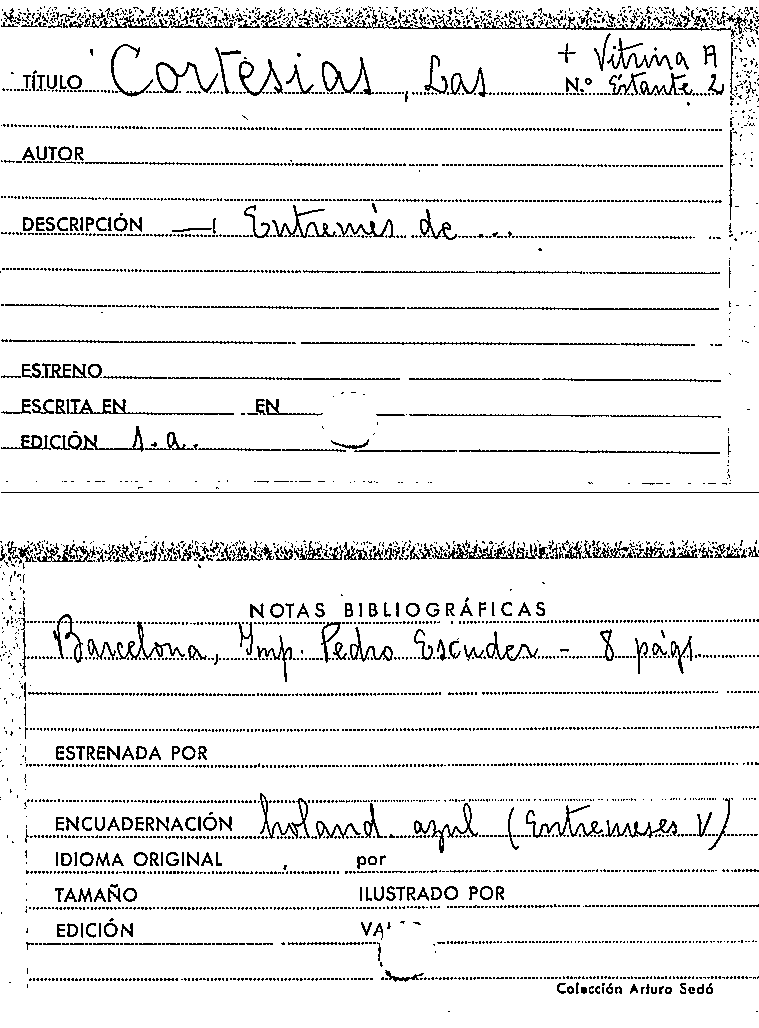 + Vitrina A
TÍTULO Cortesias, Las N.º Estante 2
AUTOR
DESCRIPCIÓN — Entremés de ...
ESTRENO
ESCRITA EN EN
EDICIÓN s.a.
NOTAS BIBLIOGRÁFICAS
Barcelona, Imp. Pedro Escuder - 8 págs.
ESTRENADA POR
ENCUADERNACIÓN holand. azul (Entremeses V)
IDIOMA ORIGINAL , por
TAMAÑO ILUSTRADO POR
EDICIÓN
Colección Arturo Sedó